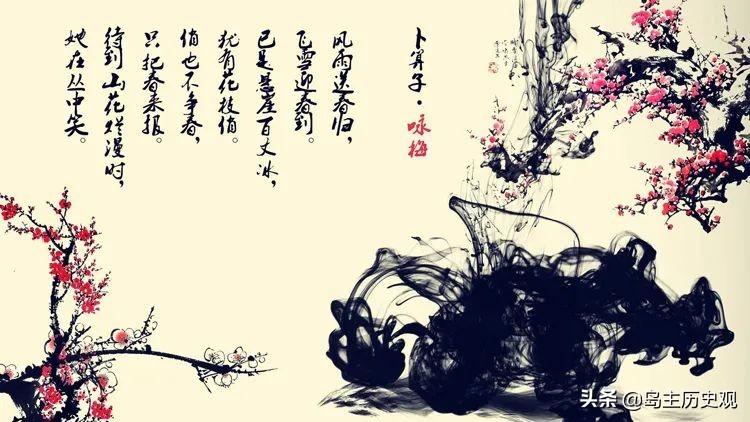 卜算子·咏梅
风雨送春归，
飞雪迎春到。
已是悬崖百丈冰，
犹有花枝俏。
俏也不争春，
只把春来报。
待到山花烂漫时，
她在丛中笑。
头条 @岛主历史观